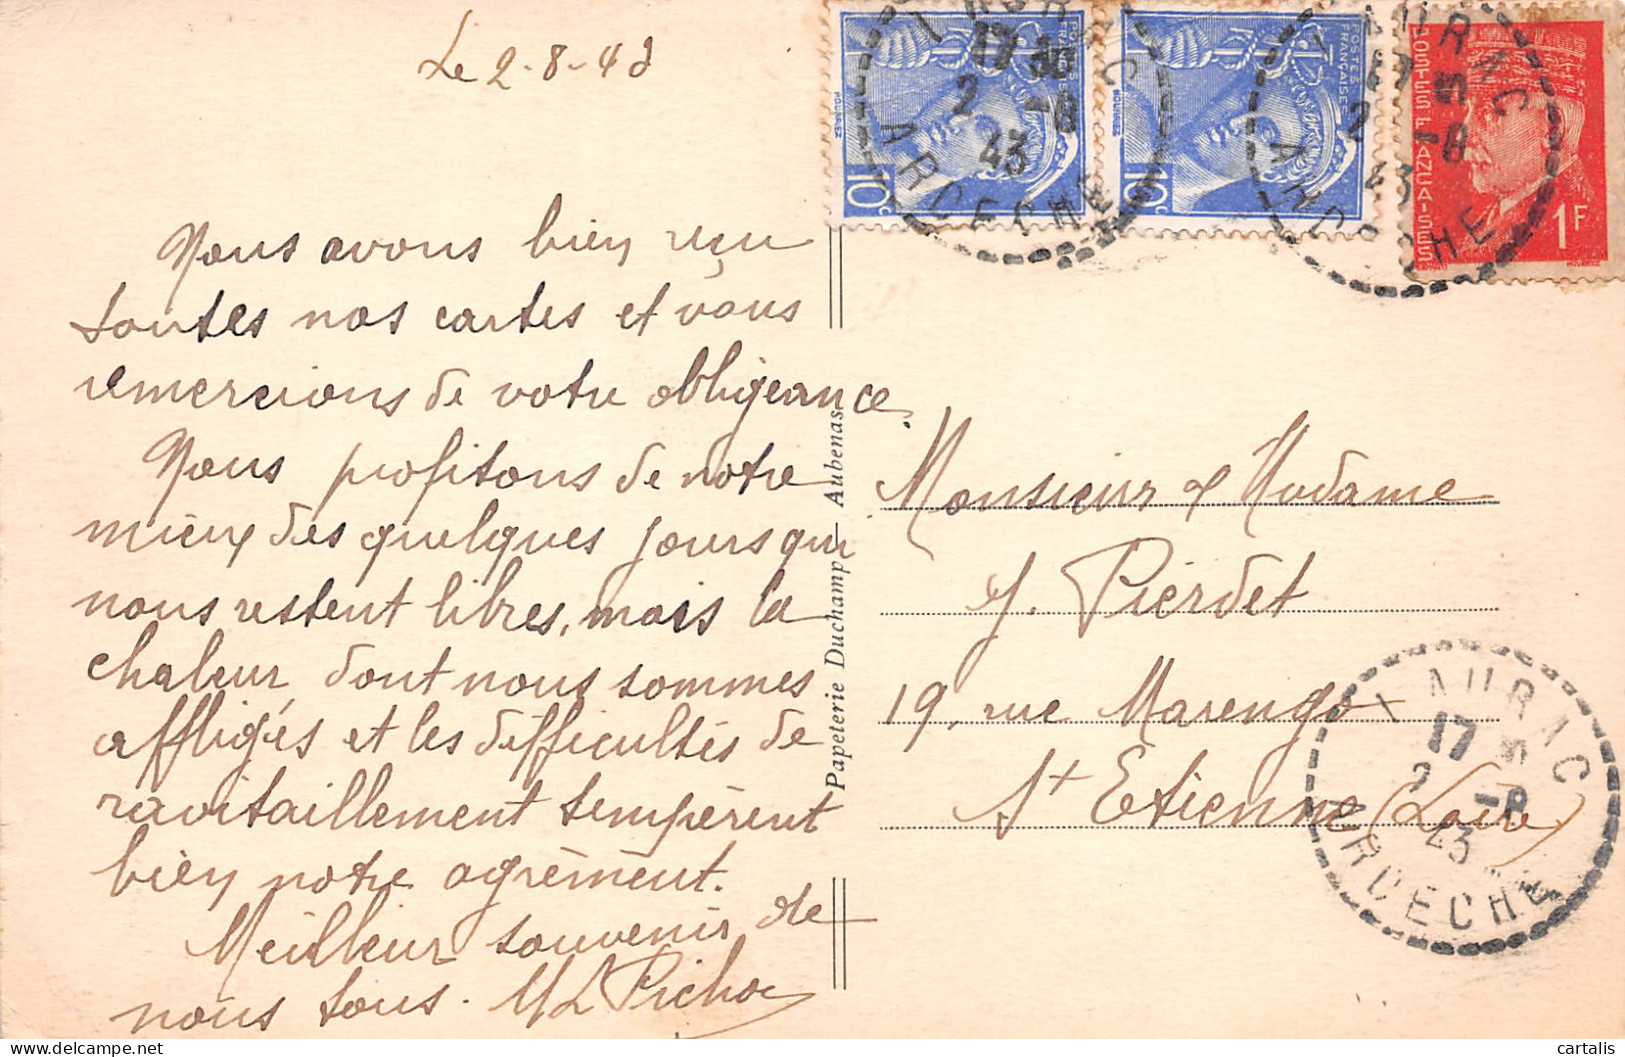 Le 2-8-43
Nous avons bien reçu
toutes nos cartes et vous
remercions de votre obligeance.
Nous profitons de notre
mieux des quelques jours qui
nous restent libres, mais la
chaleur dont nous sommes
affligés et les difficultés de
ravitaillement tempèrent
bien notre agrément.
Meilleur souvenir de
nous tous.
Papeterie Duchamp - Aubenas
POSTES FRANÇAISES
10c
MOURIEZ
POSTES FRANÇAISES
10c
MOURIEZ
POSTES FRANÇAISES
1F
LAURAC
17
2 -8
43
ARDECHE
LAURAC
17
2 -8
43
ARDECHE
Monsieur & Madame
J. Pierdet
19, rue Marengo
St Etienne (Loire)
LAURAC
17
2 -8
43
ARDECHE
cartalis